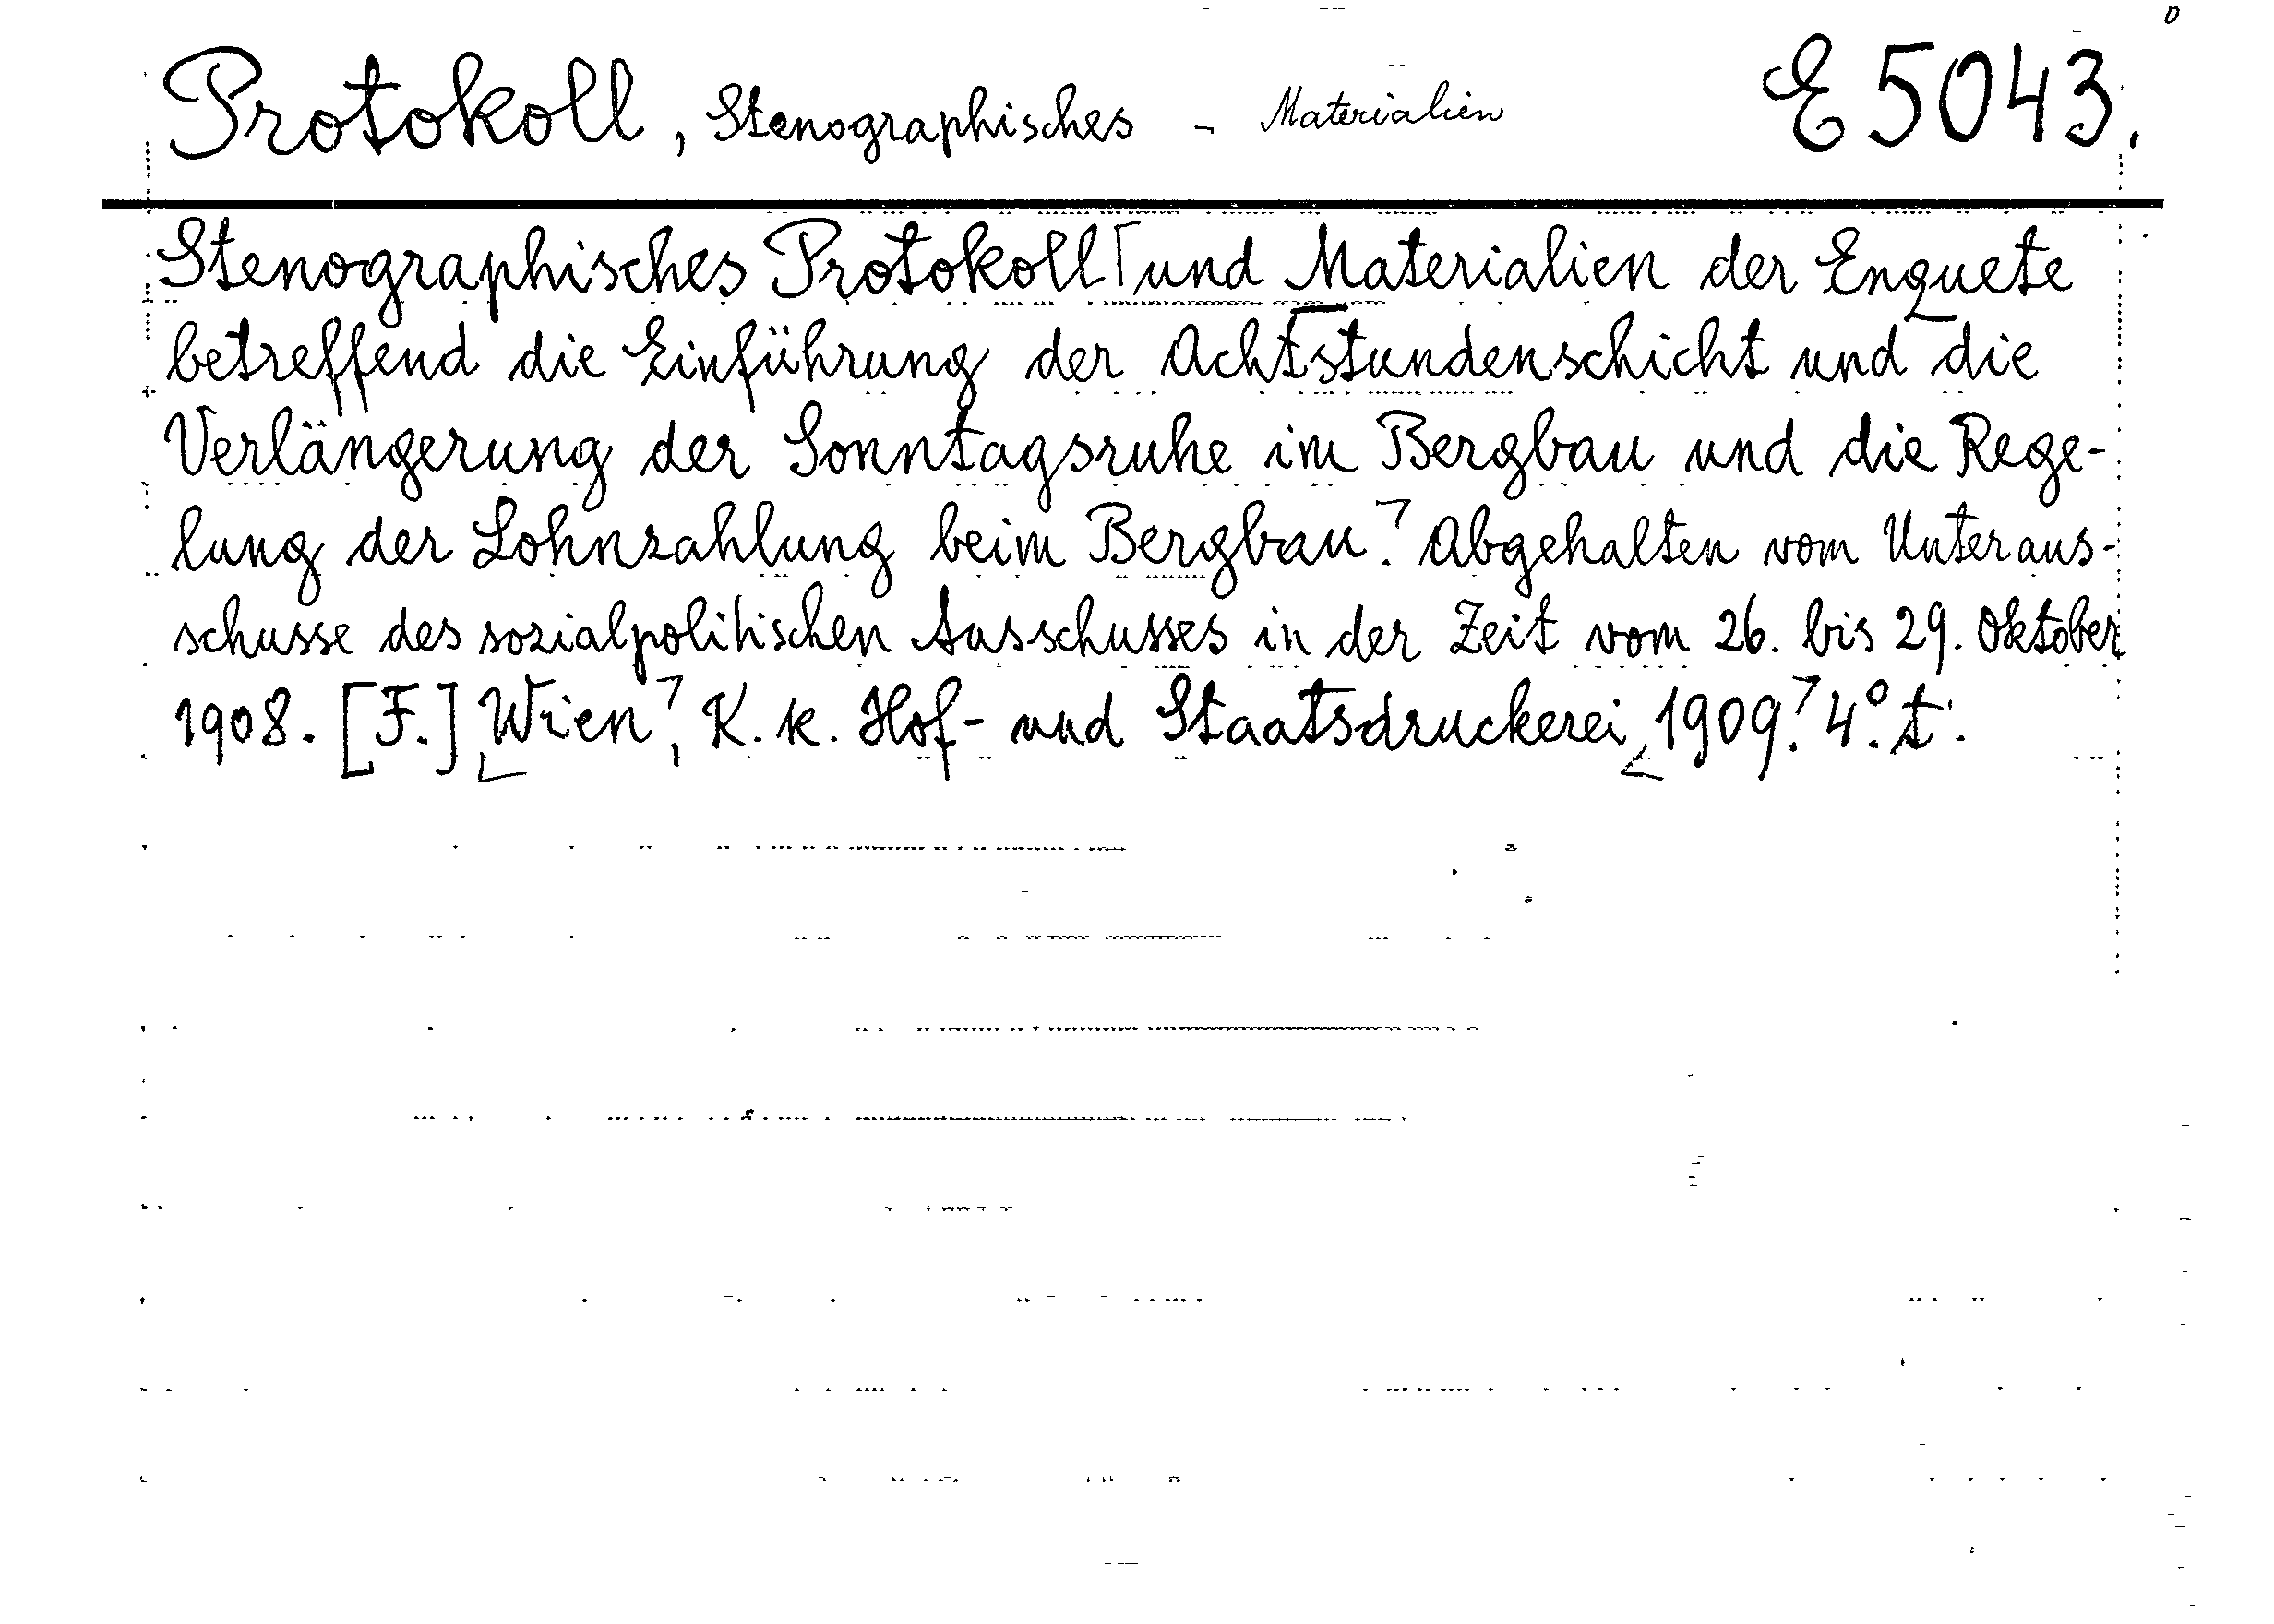 Protokoll, Stenographisches - Materialien E 5043.
Stenographisches Protokoll und Materialien der Enquete
betreffend die Einführung der Achtstundenschicht und die
Verlängerung der Sonntagsruhe im Bergbau und die Rege-
lung der Lohnzahlung beim Bergbau. Abgehalten vom Unteraus-
schusse des sozialpolitischen Ausschusses in der Zeit vom 26. bis 29. Oktober
1908. [F.] Wien, K. k. Hof- und Staatsdruckerei 1909. 4°. t.